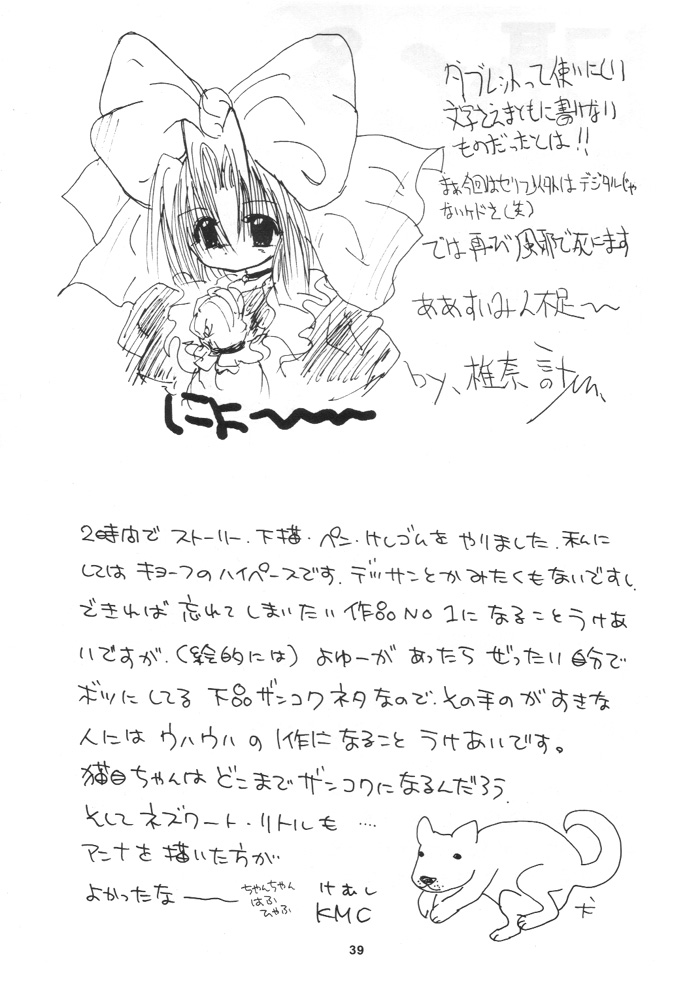 タブレットって使いにくい
文字さえまともに書けない
ものだったとは!!
まぁ今回はセリフ以外はデジタルじゃ
ないケドさ(笑)
では再び風邪で死にます
ああすいみん不足〜〜
by、椎奈
にょ〜〜〜〜
2時間で ストーリー、下描・ペン・けしゴムを やりました、私に
しては キョーフのハイペースです、デッサンとか みたくもないですし、
できれば 忘れて しまいたい 作品 NO 1に なること うけあ
いですが、(絵的には) よゆーが あったら ぜったい 自分で
ボツに してる 下品ザンコクネタ なので、その手のが すきな
人には ウハウハ の 1作に なること うけあいです。
猫目ちゃんは どこまで ザンコクに なるんだろう、
そして ネズワート・リトルも ‥‥
アンナを 描いた方が
よかったな ー〜
ちゃんちゃん
はふ
ひゃふ
けむし
KMC
犬
39